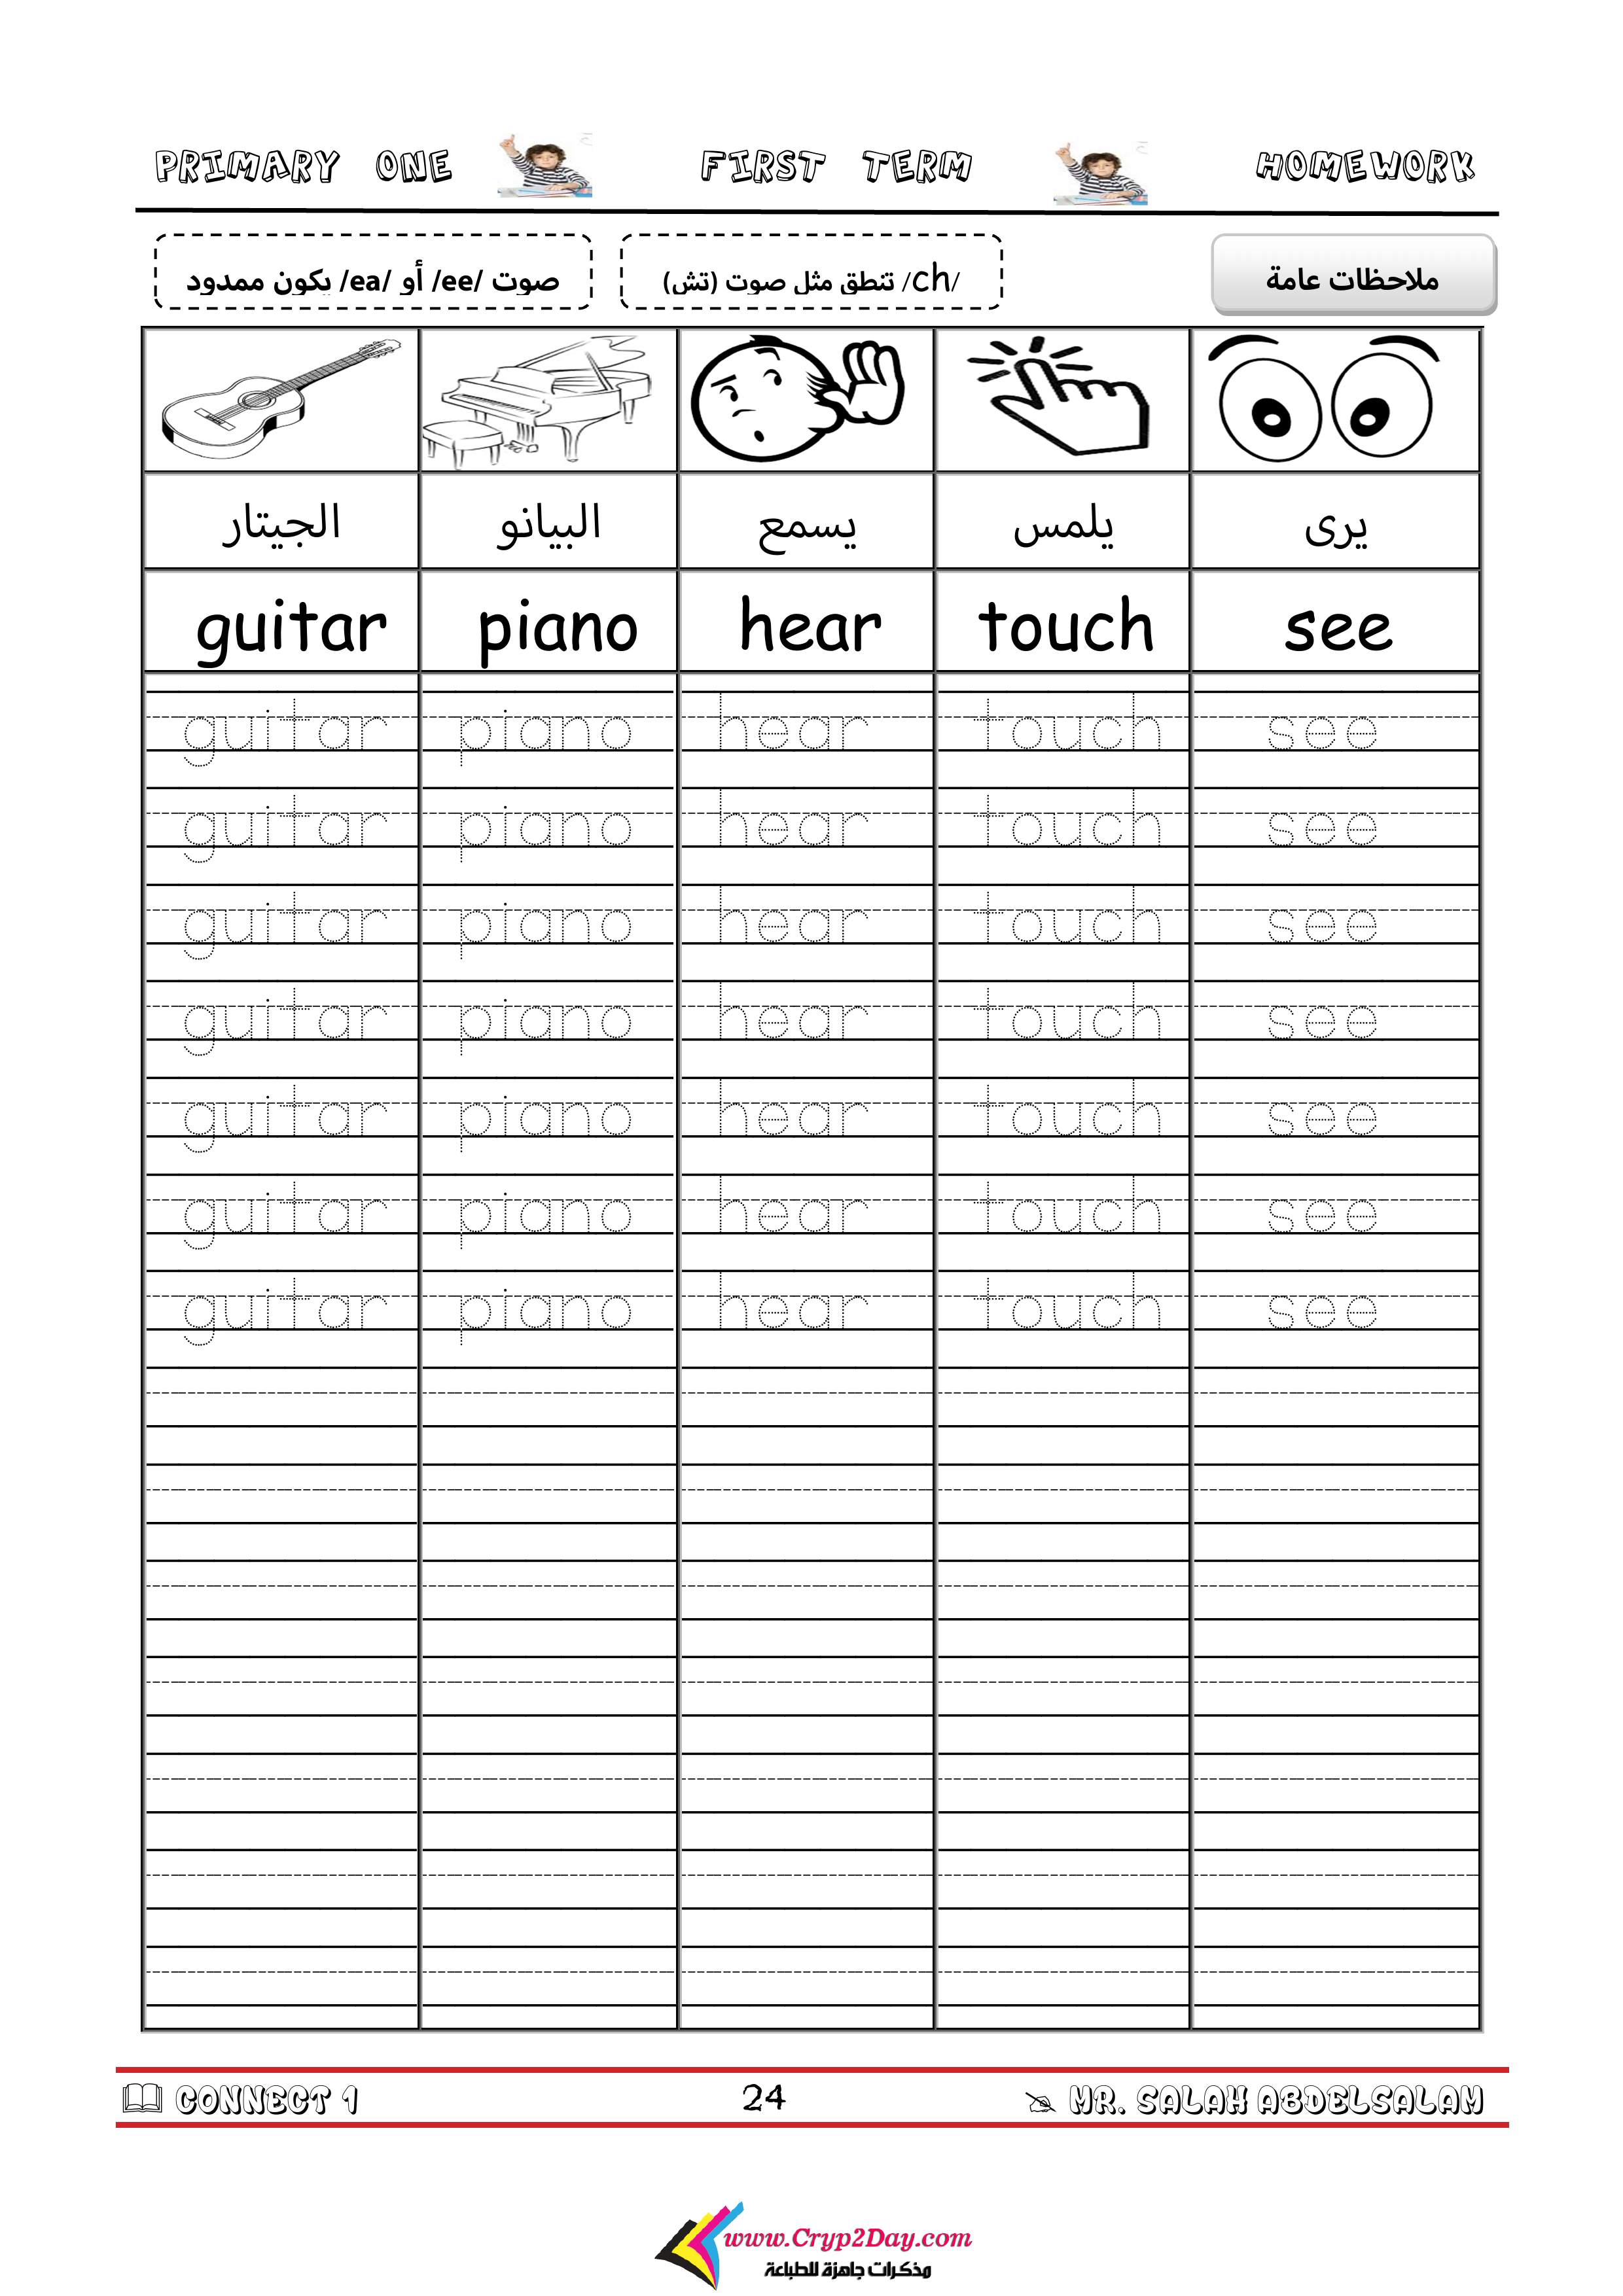 PRIMARY ONE FIRST TERM HOMEWORK
ملاحظات عامة
/ch/ تنطق مثل صوت (تش)
صوت /ee/ أو /ea/ يكون ممدود
الجيتار البيانو يسمع يلمس يرى
guitar piano hear touch see
guitar piano hear touch see
guitar piano hear touch see
guitar piano hear touch see
guitar piano hear touch see
guitar piano hear touch see
guitar piano hear touch see
guitar piano hear touch see
CONNECT 1 24 MR. SALAH ABDELSALAM
www.Cryp2Day.com
مذكرات جاهزة للطباعة